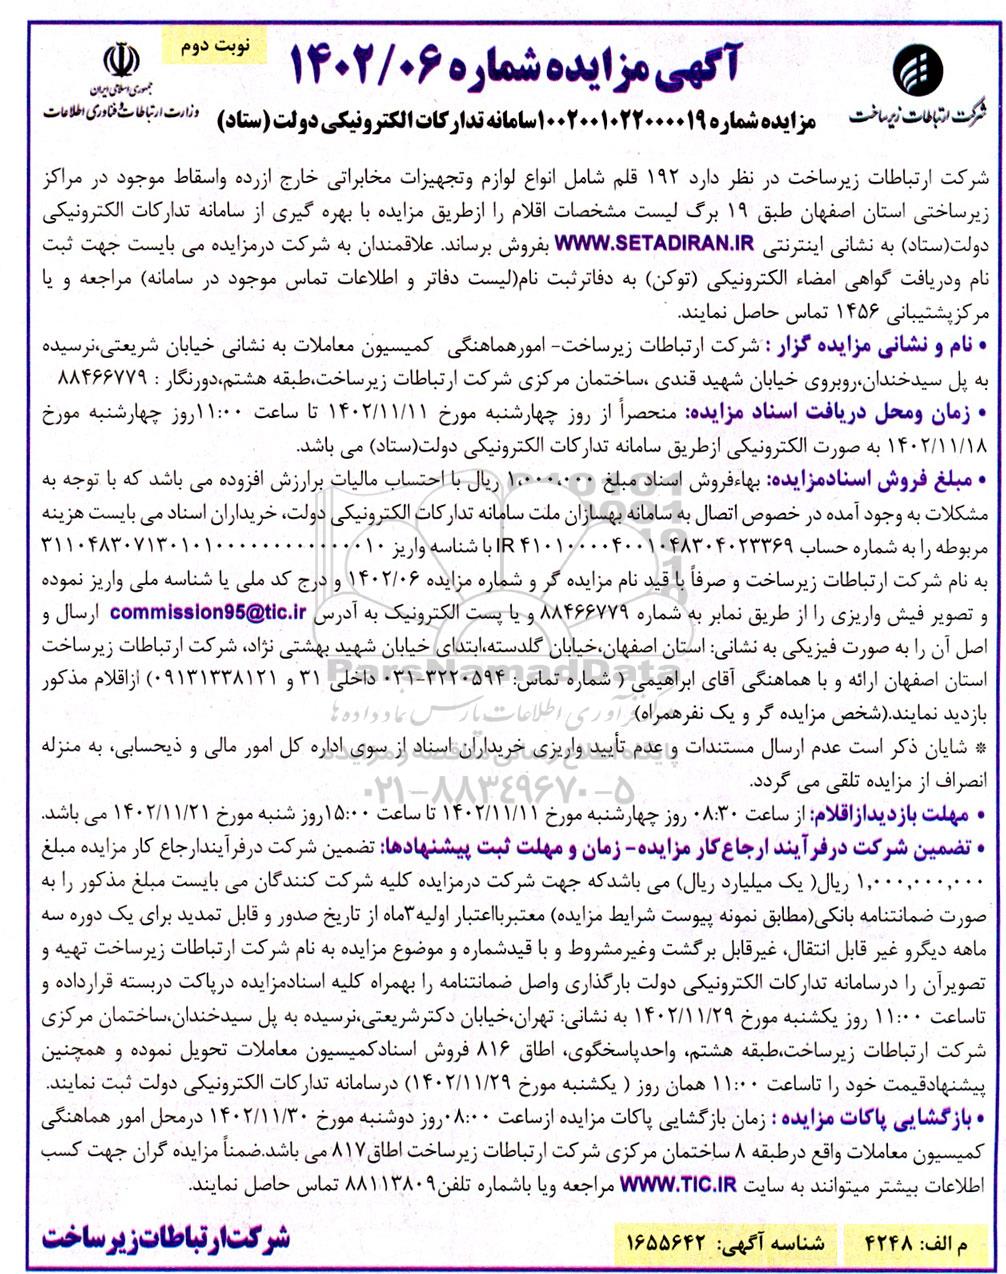 نوبت دوم
آگهی مزایده شماره ۱۴۰۲/۰۶
جمهوری اسلامی ایران
وزارت ارتباطات و فناوری اطلاعات
شرکت ارتباطات زیرساخت
مزایده شماره ۱۰۰۲۰۰۱۰۲۲۰۰۰۰۱۹سامانه تدارکات الکترونیکی دولت (ستاد)
شرکت ارتباطات زیرساخت در نظر دارد ۱۹۲ قلم شامل انواع لوازم وتجهیزات مخابراتی خارج ازرده واسقاط موجود در مراکز
زیرساختی استان اصفهان طبق ۱۹ برگ لیست مشخصات اقلام را ازطریق مزایده با بهره گیری از سامانه تدارکات الکترونیکی
دولت(ستاد) به نشانی اینترنتی WWW.SETADIRAN.IR بفروش برساند. علاقمندان به شرکت درمزایده می بایست جهت ثبت
نام ودریافت گواهی امضاء الکترونیکی (توکن) به دفاترثبت نام(لیست دفاتر و اطلاعات تماس موجود در سامانه) مراجعه و یا
مرکزپشتیبانی ۱۴۵۶ تماس حاصل نمایند.
• نام و نشانی مزایده گزار : شرکت ارتباطات زیرساخت- امورهماهنگی کمیسیون معاملات به نشانی خیابان شریعتی،نرسیده
به پل سیدخندان،روبروی خیابان شهید قندی ،ساختمان مرکزی شرکت ارتباطات زیرساخت،طبقه هشتم،دورنگار : ۸۸۴۶۶۷۷۹
• زمان ومحل دریافت اسناد مزایده: منحصراً از روز چهارشنبه مورخ ۱۴۰۲/۱۱/۱۱ تا ساعت ۱۱:۰۰روز چهارشنبه مورخ
۱۴۰۲/۱۱/۱۸ به صورت الکترونیکی ازطریق سامانه تدارکات الکترونیکی دولت(ستاد) می باشد.
• مبلغ فروش اسنادمزایده: بهاءفروش اسناد مبلغ ۱،۰۰۰،۰۰۰ ریال با احتساب مالیات برارزش افزوده می باشد که با توجه به
مشکلات به وجود آمده در خصوص اتصال به سامانه بهسازان ملت سامانه تدارکات الکترونیکی دولت، خریداران اسناد می بایست هزینه
مربوطه را به شماره حساب IR ۴۱۰۱۰۰۰۰۴۰۰۱۰۴۸۳۰۴۰۲۳۳۶۹ با شناسه واریز ۳۱۱۰۴۸۳۰۷۱۳۰۱۰۱۰۰۰۰۰۰۰۰۰۰۰۰۱۰
به نام شرکت ارتباطات زیرساخت و صرفاً با قید نام مزایده گر و شماره مزایده ۱۴۰۲/۰۶ و درج کد ملی یا شناسه ملی واریز نموده
و تصویر فیش واریزی را از طریق نمابر به شماره ۸۸۴۶۶۷۷۹ و یا پست الکترونیک به آدرس commission95@tic.ir ارسال و
اصل آن را به صورت فیزیکی به نشانی: استان اصفهان،خیابان گلدسته،ابتدای خیابان شهید بهشتی نژاد، شرکت ارتباطات زیرساخت
ParsNamadData
استان اصفهان ارائه و با هماهنگی آقای ابراهیمی ( شماره تماس: ۳۲۲۰۵۹۴-۰۳۱ داخلی ۳۱ و ۰۹۱۳۱۳۳۸۱۲۱) ازاقلام مذکور
بازدید نمایند.(شخص مزایده گر و یک نفرهمراه)
فرآوری اطلاعات پارس نماد داده ها
* شایان ذکر است عدم ارسال مستندات و عدم تأیید واریزی خریداران اسناد از سوی اداره کل امور مالی و ذیحسابی، به منزله
انصراف از مزایده تلقی می گردد.
۰۲۱-۸۸۳۴۹۶۷۰-۵
• مهلت بازدیدازاقلام: از ساعت ۰۸:۳۰ روز چهارشنبه مورخ ۱۴۰۲/۱۱/۱۱ تا ساعت ۱۵:۰۰روز شنبه مورخ ۱۴۰۲/۱۱/۲۱ می باشد.
• تضمین شرکت درفرآیند ارجاع‌کار مزایده- زمان و مهلت ثبت پیشنهادها: تضمین شرکت درفرآیندارجاع کار مزایده مبلغ
۱,۰۰۰,۰۰۰,۰۰۰ ریال( یک میلیارد ریال) می باشدکه جهت شرکت درمزایده کلیه شرکت کنندگان می بایست مبلغ مذکور را به
صورت ضمانتنامه بانکی(مطابق نمونه پیوست شرایط مزایده) معتبربااعتبار اولیه۳ماه از تاریخ صدور و قابل تمدید برای یک دوره سه
ماهه دیگرو غیر قابل انتقال، غیرقابل برگشت وغیرمشروط و با قیدشماره و موضوع مزایده به نام شرکت ارتباطات زیرساخت تهیه و
تصویرآن را درسامانه تدارکات الکترونیکی دولت بارگذاری واصل ضمانتنامه را بهمراه کلیه اسنادمزایده درپاکت دربسته قرارداده و
تاساعت ۱۱:۰۰ روز یکشنبه مورخ ۱۴۰۲/۱۱/۲۹ به نشانی: تهران،خیابان دکترشریعتی،نرسیده به پل سیدخندان،ساختمان مرکزی
شرکت ارتباطات زیرساخت،طبقه هشتم، واحدپاسخگوی، اطاق ۸۱۶ فروش اسنادکمیسیون معاملات تحویل نموده و همچنین
پیشنهادقیمت خود را تاساعت ۱۱:۰۰ همان روز ( یکشنبه مورخ ۱۴۰۲/۱۱/۲۹) درسامانه تدارکات الکترونیکی دولت ثبت نمایند.
• بازگشایی پاکات مزایده : زمان بازگشایی پاکات مزایده ازساعت ۰۸:۰۰روز دوشنبه مورخ ۱۴۰۲/۱۱/۳۰ درمحل امور هماهنگی
کمیسیون معاملات واقع درطبقه ۸ ساختمان مرکزی شرکت ارتباطات زیرساخت اطاق۸۱۷ می باشد.ضمناً مزایده گران جهت کسب
اطلاعات بیشتر میتوانند به سایت WWW.TIC.IR مراجعه ویا باشماره تلفن۸۸۱۱۳۸۰۹ تماس حاصل نمایند.
م الف: ۴۲۴۸
شناسه آگهی: ۱۶۵۵۶۴۲
شرکت ارتباطات زیرساخت